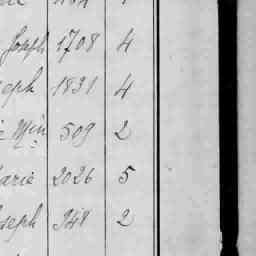 Joseph 1708 4
seph 1831 4
Min 509 2
arie 2026 5
oseph 948 2